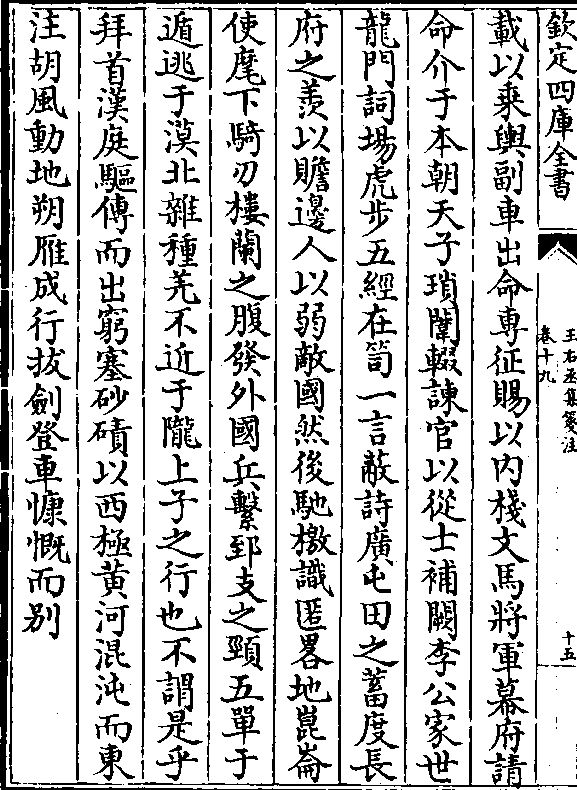 欽定四庫全書
王右丞集箋注
卷十九
十五
載以乘輿副車出命專征賜以内棧文馬將軍幕府請
命介于本朝天子瑣闈輟諫官以從士補闕李公家世
龍門詞場虎步五經在笥一言蔽詩廣屯田之蓄度長
府之羨以贍邊人以弱敵國然後馳檄識匿畧地崑崙
使麾下騎刃樓蘭之腹發外國兵繫郅支之頸五單于
遁逃于漠北雜種羌不近于隴上子之行也不謂是乎
拜首漢庭驅傳而出窮塞砂磧以西極黄河混沌而東
注胡風動地朔雁成行拔劍登車慷慨而别